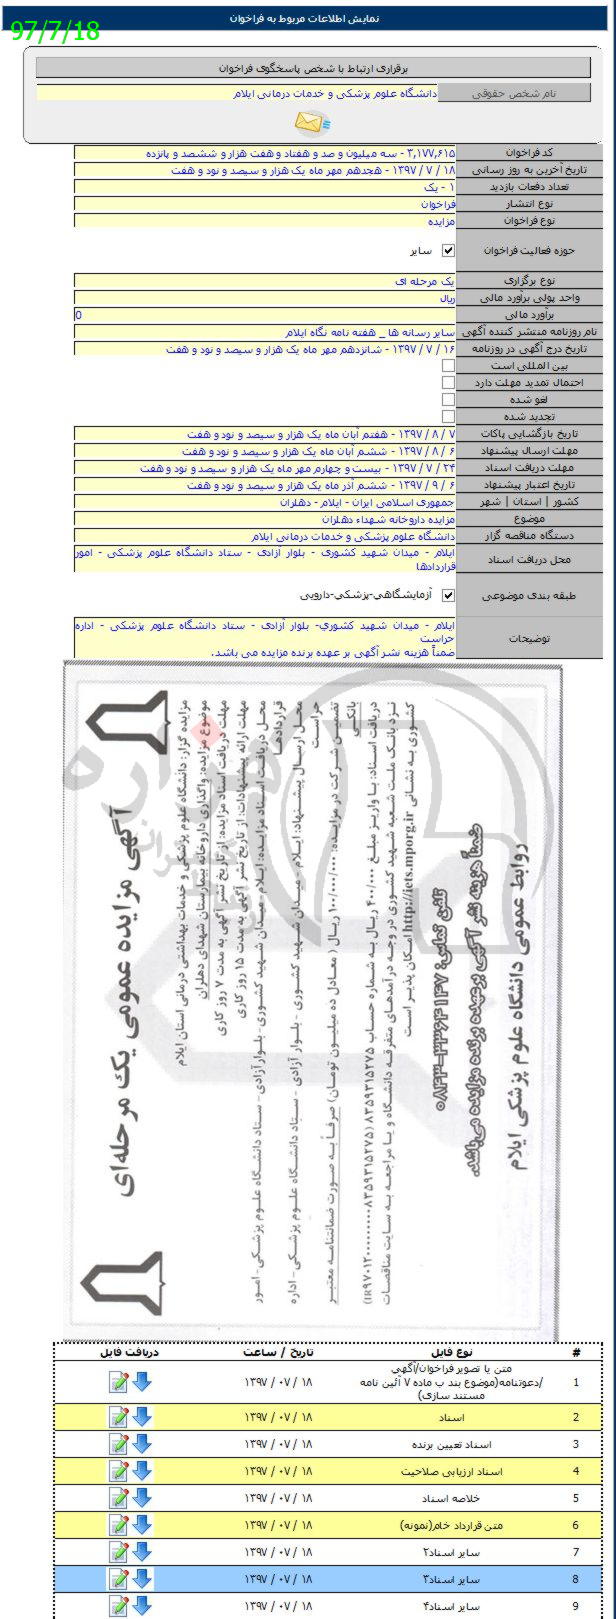 نمایش اطلاعات مربوط به فراخوان
97/7/18
برقراری ارتباط با شخص پاسخگوی فراخوان
نام شخص حقوقی دانشگاه علوم پزشکی و خدمات درمانی ایلام
کد فراخوان ۳,۱۷۷,۶۱۵ - سه میلیون و صد و هفتاد و هفت هزار و ششصد و پانزده
تاریخ آخرین به روز رسانی ۱۸ / ۷ / ۱۳۹۷ - هجدهم مهر ماه یک هزار و سیصد و نود و هفت
تعداد دفعات بازدید ۱ - یک
نوع انتشار فراخوان
نوع فراخوان مزایده
حوزه فعالیت فراخوان سایر
نوع برگزاری یک مرحله ای
واحد پولی برآورد مالی ریال
برآورد مالی 0
نام روزنامه منتشر کننده آگهی سایر رسانه ها _ هفته نامه نگاه ایلام
تاریخ درج آگهی در روزنامه ۱۶ / ۷ / ۱۳۹۷ - شانزدهم مهر ماه یک هزار و سیصد و نود و هفت
بین المللی است
احتمال تمدید مهلت دارد
لغو شده
تجدید شده
تاریخ بازگشایی پاکات ۷ / ۸ / ۱۳۹۷ - هفتم آبان ماه یک هزار و سیصد و نود و هفت
مهلت ارسال پیشنهاد ۶ / ۸ / ۱۳۹۷ - ششم آبان ماه یک هزار و سیصد و نود و هفت
مهلت دریافت اسناد ۲۴ / ۷ / ۱۳۹۷ - بیست و چهارم مهر ماه یک هزار و سیصد و نود و هفت
تاریخ اعتبار پیشنهاد ۶ / ۹ / ۱۳۹۷ - ششم آذر ماه یک هزار و سیصد و نود و هفت
کشور | استان | شهر جمهوری اسلامی ایران - ایلام - دهلران
موضوع مزایده داروخانه شهداء دهلران
دستگاه مناقصه گزار دانشگاه علوم پزشکی و خدمات درمانی ایلام
محل دریافت اسناد ایلام - میدان شهید کشوری - بلوار آزادی - ستاد دانشگاه علوم پزشکی - امور
قراردادها
طبقه بندی موضوعی آزمایشگاهی-پزشکی-دارویی
توضیحات ایلام - میدان شهید کشوری- بلوار آزادی - ستاد دانشگاه علوم پزشکی - اداره
حراست
ضمناً هزینه نشر آگهی بر عهده برنده مزایده می باشد.
آگهی مزایده عمومی یک مرحله‌ای
مزایده گزار: دانشگاه علوم پزشکی و خدمات بهداشتی درمانی استان ایلام
موضوع مزایده: واگذاری داروخانه بیمارستان شهدای دهلران
مهلت دریافت اسناد مزایده: از تاریخ نشر آگهی به مدت ۷ روز کاری
مهلت ارائه پیشنهادات: از تاریخ نشر آگهی به مدت ۱۵ روز کاری
محل دریافت اسناد مزایده: ایلام - میدان شهید کشوری - بلوار آزادی - ستاد دانشگاه علوم پزشکی - امور
قراردادها
محل ارسال پیشنهاد: ایلام - میدان شهید کشوری - بلوار آزادی - ستاد دانشگاه علوم پزشکی - اداره
حراست
تضمین شرکت در مزایده: ۱۰۰/۰۰۰/۰۰۰ ریال (معادل ده میلیون تومان) صرفاً به صورت ضمانتنامه معتبر
بانکی
دریافت اسناد: با واریز مبلغ ۴۰۰/۰۰۰ ریال به شماره حساب ۸۳۵۹۳۱۵۲۷۵
نزد بانک ملت شعبه شهید کشوری در وجه درآمدهای متفرقه دانشگاه و یا مراجعه به سایت مناقصات
کشوری به نشانی http://iets.mporg.ir امکان پذیر است
تلفن تماس: ۳۳۳۶۴۱۴۷-۰۸۴۳
ضمناً هزینه نشر آگهی برعهده برنده مزایده می‌باشد.
روابط عمومی دانشگاه علوم پزشکی ایلام
# نوع فایل تاریخ / ساعت دریافت فایل
1 متن یا تصویر فراخوان/آگهی
/دعوتنامه(موضوع بند ب ماده ۷ آئین نامه
مستند سازی) ۱۳۹۷ / ۰۷ / ۱۸
2 اسناد ۱۳۹۷ / ۰۷ / ۱۸
3 اسناد تعیین برنده ۱۳۹۷ / ۰۷ / ۱۸
4 اسناد ارزیابی صلاحیت ۱۳۹۷ / ۰۷ / ۱۸
5 خلاصه اسناد ۱۳۹۷ / ۰۷ / ۱۸
6 متن قرارداد خام(نمونه) ۱۳۹۷ / ۰۷ / ۱۸
7 سایر اسناد۲ ۱۳۹۷ / ۰۷ / ۱۸
8 سایر اسناد۳ ۱۳۹۷ / ۰۷ / ۱۸
9 سایر اسناد۴ ۱۳۹۷ / ۰۷ / ۱۸